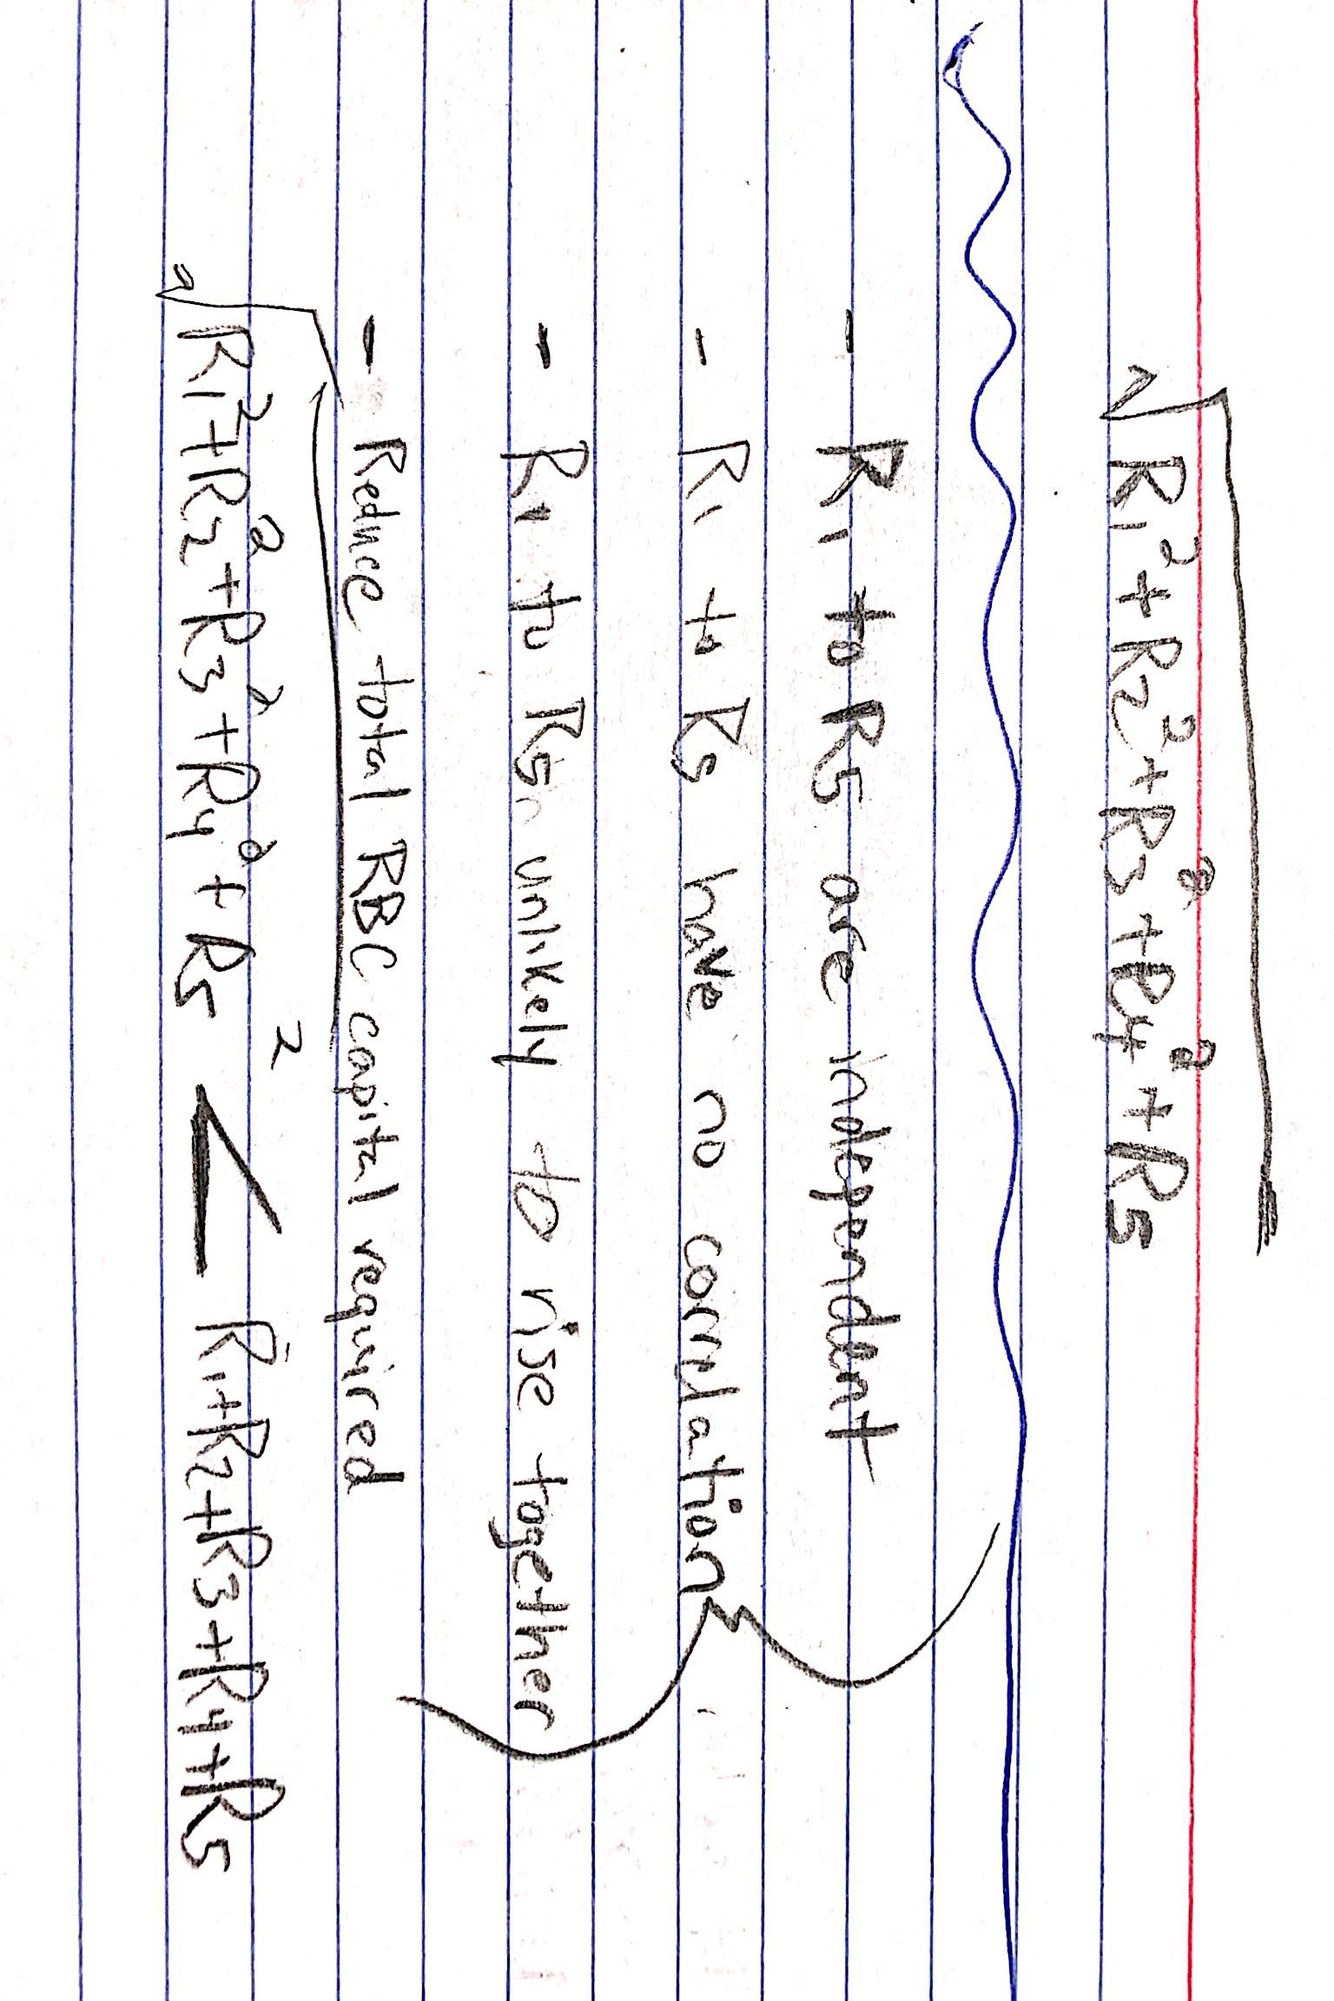 √R1²+R2²+R3²+R4²+R5
- R1 to R5 are independent
- R1 to R5 have no correlation
- R1 to R5 unlikely to rise together
- Reduce total RBC capital required
√R1²+R2²+R3²+R4²+R5² < R1+R2+R3+R4+R5